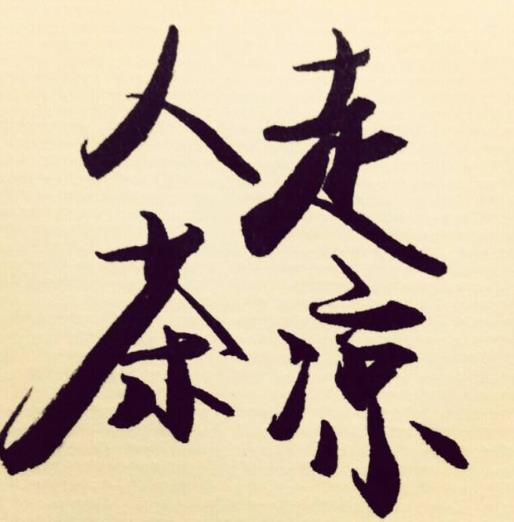 人走
茶凉